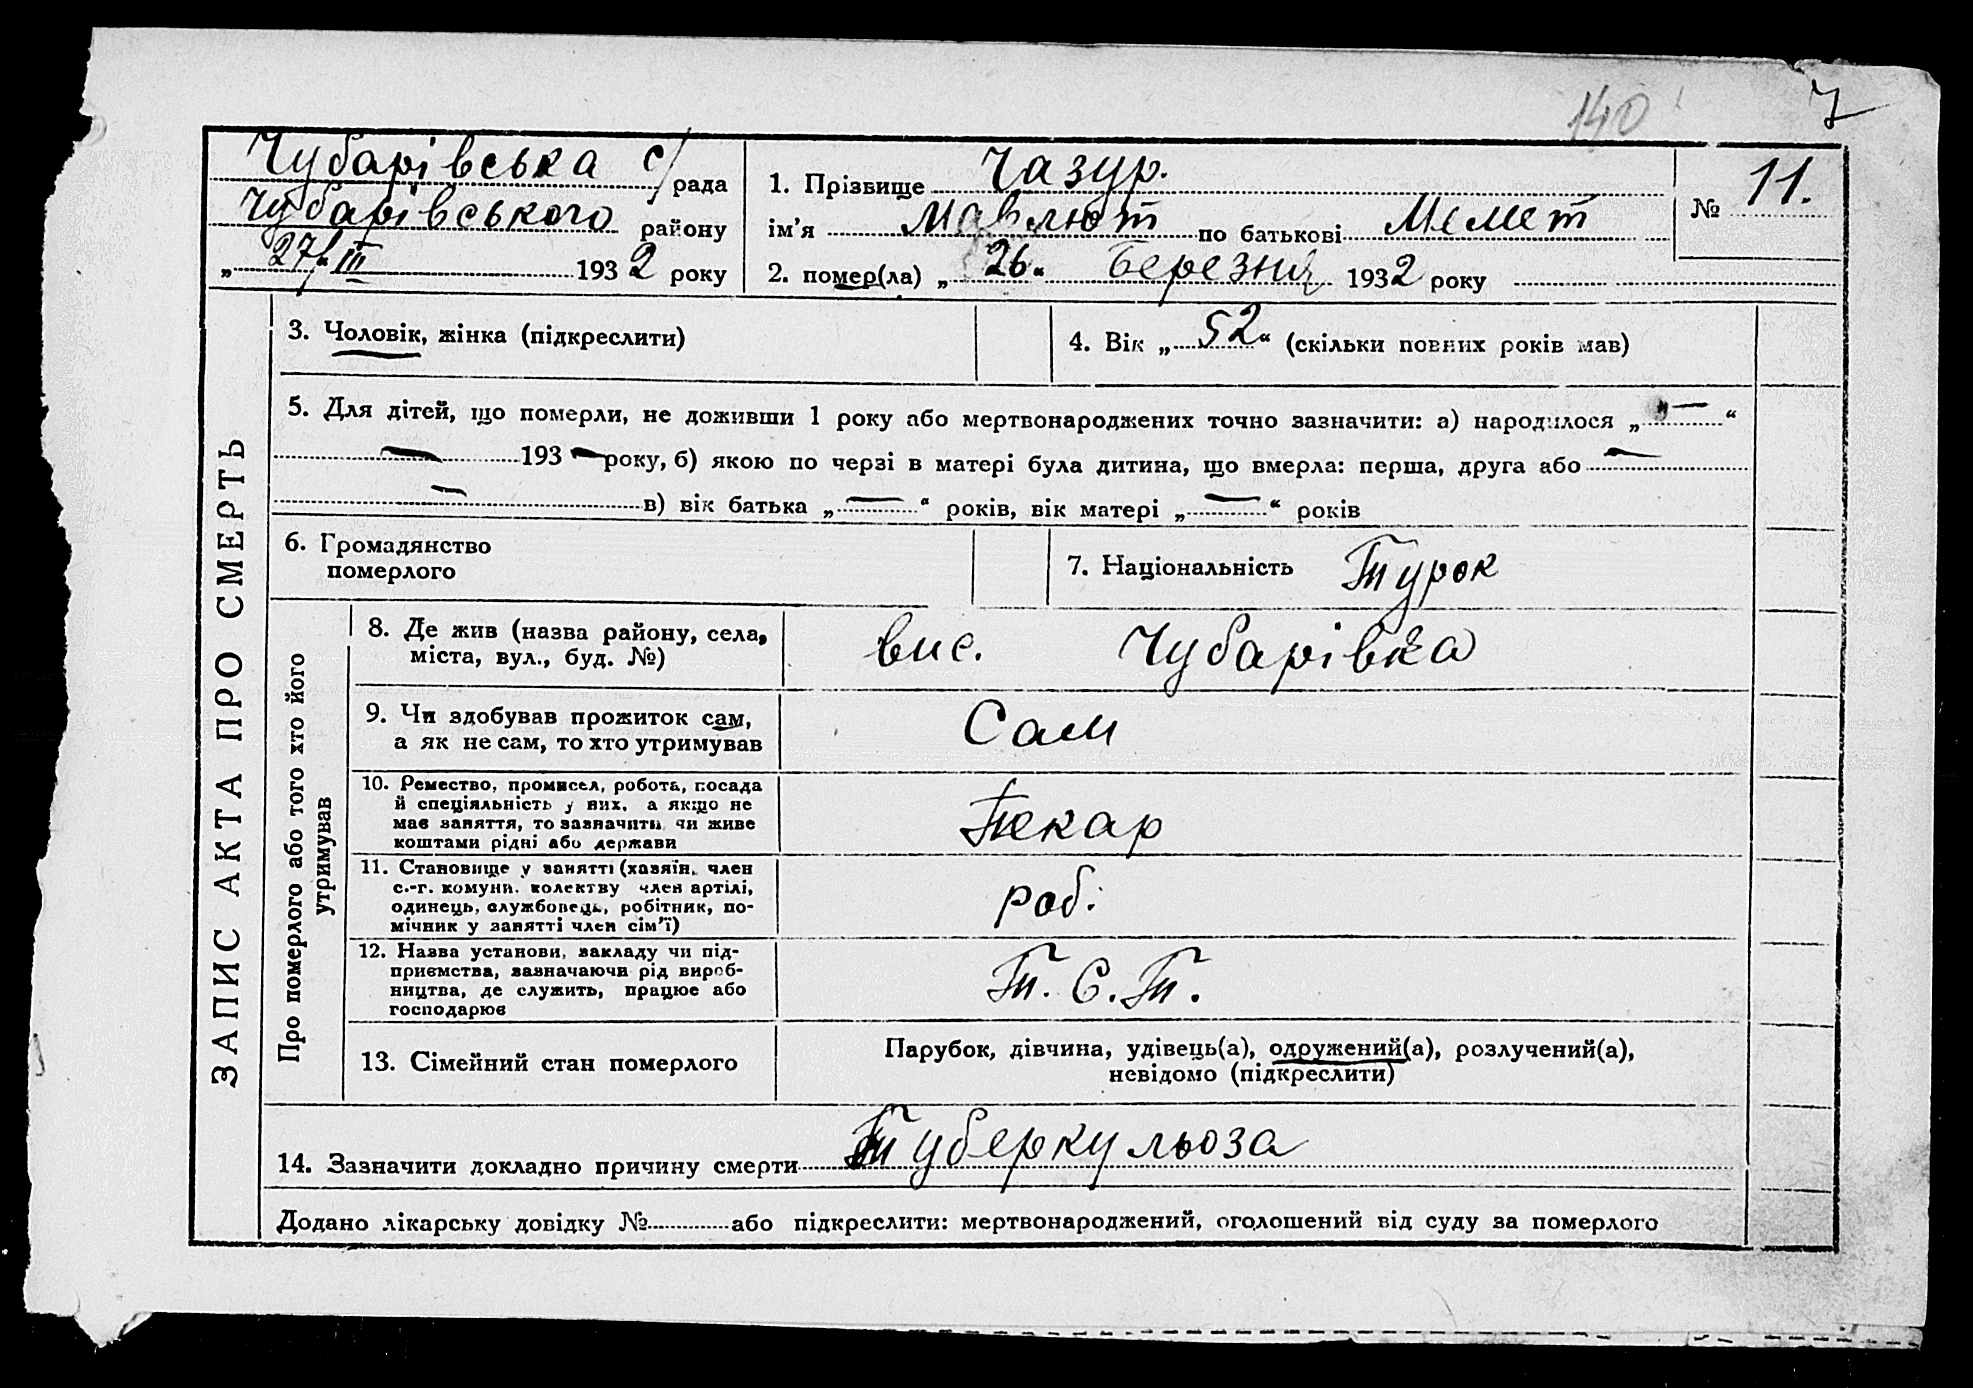 140
7
Чубарівська с/рада
Чубарівського району
„27/III 1932 року
1. Прізвище Чазур.
ім'я Мавлют по батькові Мемет
2. помер(ла) „26“ Березня 1932 року
№ 11.
ЗАПИС АКТА ПРО СМЕРТЬ
3. Чоловік, жінка (підкреслити)
4. Вік „52“ (скільки повних років мав)
5. Для дітей, що померли, не доживши 1 року або мертвонароджених точно зазначити: а) народилося „—“
— 193— року, б) якою по черзі в матері була дитина, що вмерла: перша, друга або —
— в) вік батька „—“ років, вік матері „—“ років
6. Громадянство
померлого
7. Національність Турок
Про померлого або того хто його
утримував
8. Де жив (назва району, села,
міста, вул., буд. №)
вис. Чубарівка
9. Чи здобував прожиток сам,
а як не сам, то хто утримував
Сам
10. Ремество, промисел, робота, посада
й спеціяльність у них, а якщо не
має заняття, то зазначити чи живе
коштами рідні або держави
Пекар
11. Становище у занятті (хазяїн, член
с.-г. комуни, колективу член артілі,
одинець, службовець, робітник, по-
мічник у занятті член сім'ї)
роб.
12. Назва установи, закладу чи під-
приємства, зазначаючи рід вироб-
ництва, де служить, працює або
господарює
Т. С. Т.
13. Сімейний стан померлого
Парубок, дівчина, удівець(а), одружений(а), розлучений(а),
невідомо (підкреслити)
14. Зазначити докладно причину смерти Туберкульоза
Додано лікарську довідку № або підкреслити: мертвонароджений, оголошений від суду за померлого